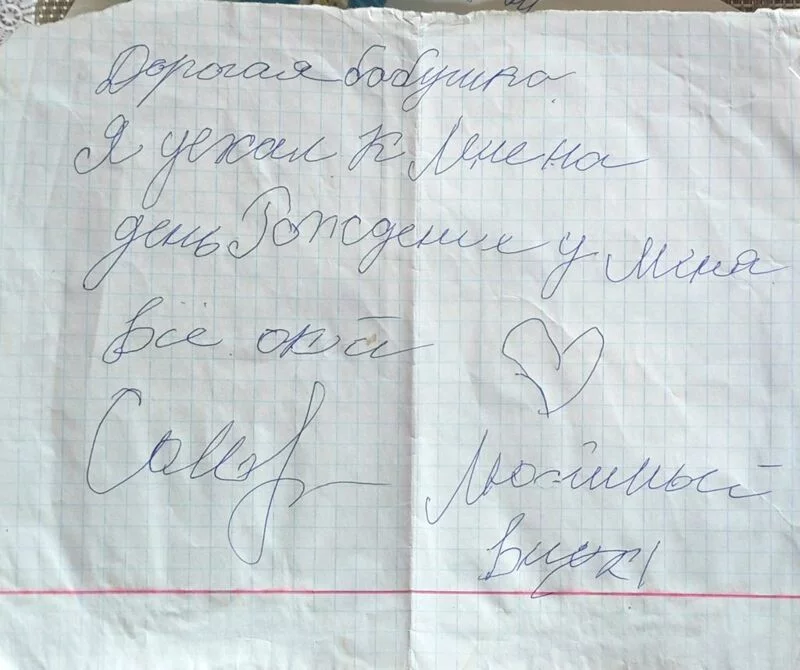 Дорогая бабушка
Я уехал к Лиле на
день Рождение у меня
всё окей
Любимый
внук!